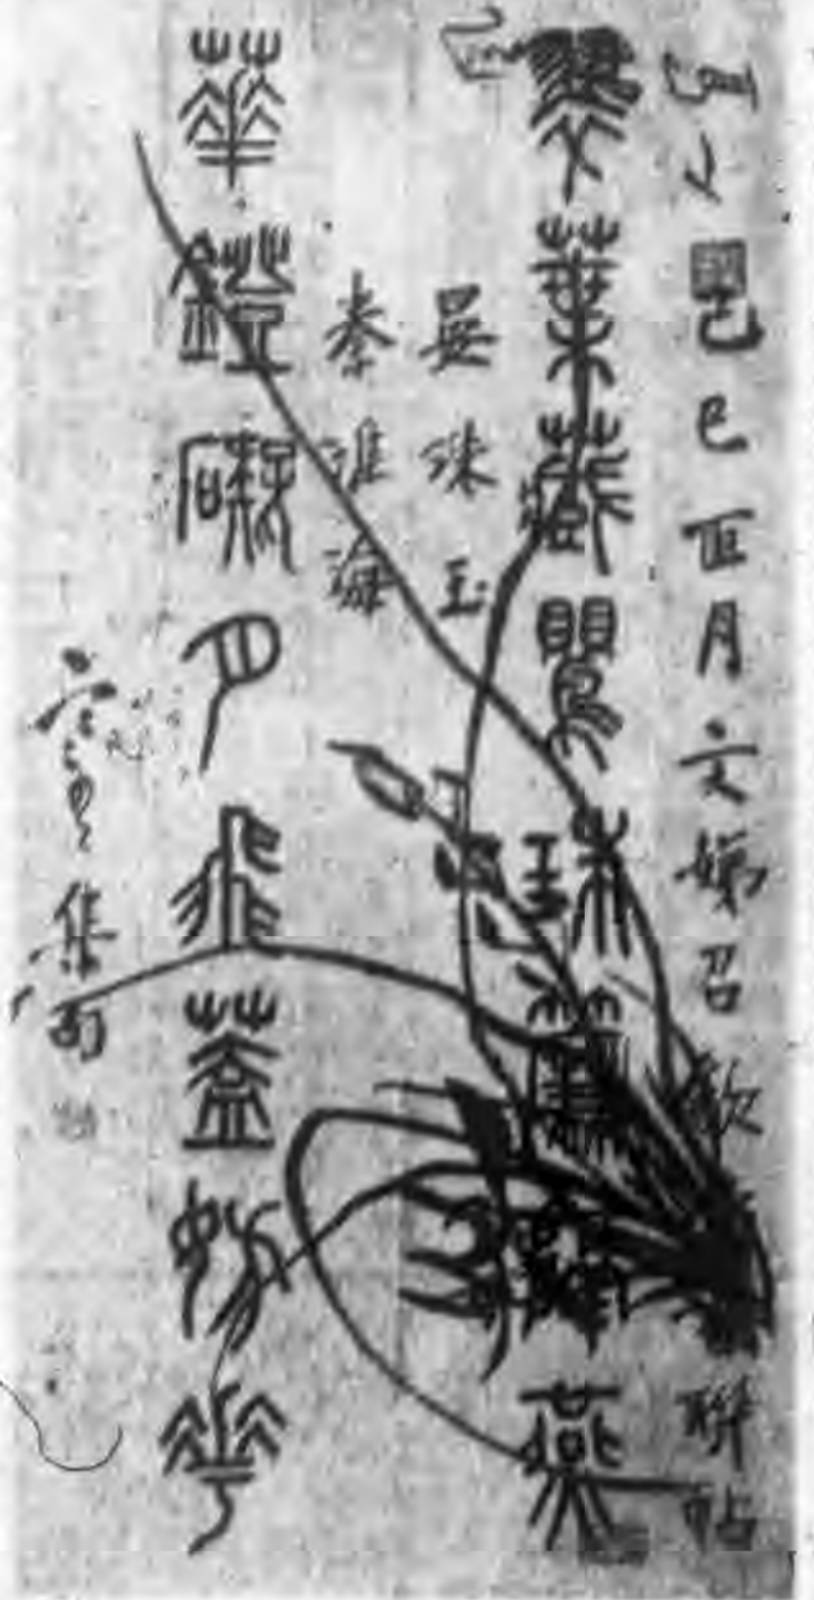 己巳正月文娣召飲
聯帖
翠葉藏鶯珠簾隔燕
晏珠玉
秦淮海
華鐙礙月飛蓋妨花
集句